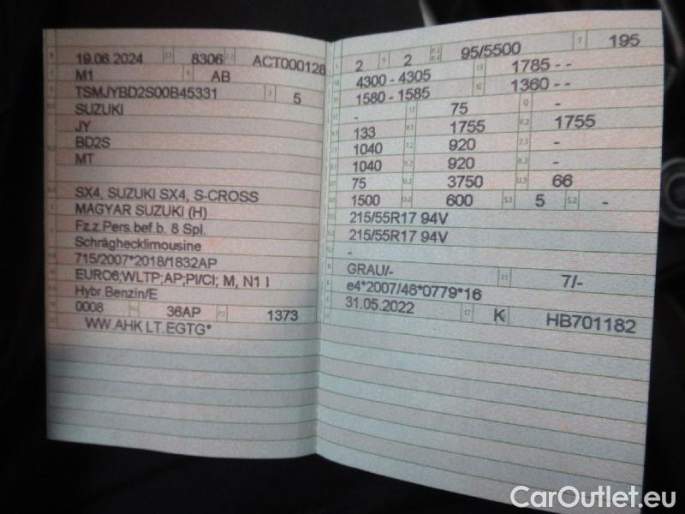 19.06.2024 8306 ACT000128
M1 AB
TSMJYBD2S00B45331 5
SUZUKI
JY
BD2S
MT
SX4, SUZUKI SX4, S-CROSS
MAGYAR SUZUKI (H)
Fz.z.Pers.bef.b. 8 Spl.
Schräghecklimousine
715/2007*2018/1832AP
EURO6;WLTP;AP;PI/CI; M, N1 I
Hybr.Benzin/E
0008 36AP 1373
WW.AHK LT.EGTG*
2 2 95/5500 195
4300 - 4305 1785 - -
1580 - 1585 1360 - -
- 75 -
133 1755 1755
1040 920 -
1040 920 -
75 3750 66
1500 600 5 -
215/55R17 94V
215/55R17 94V
-
GRAU/- 7/-
e4*2007/46*0779*16
31.05.2022 K HB701182
CarOutlet.eu